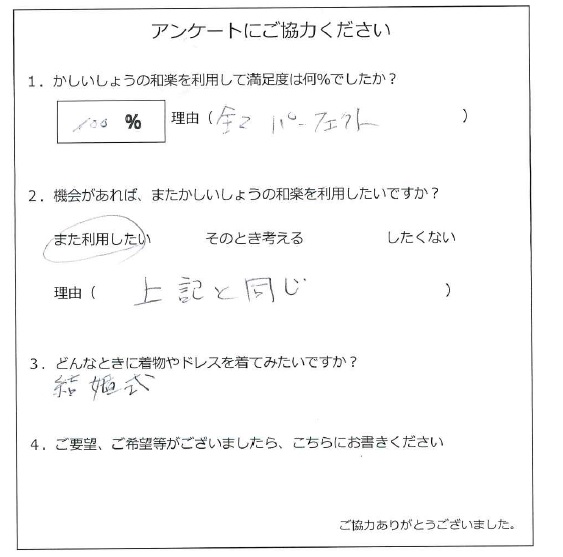 アンケートにご協力ください
1．かしいしょうの和楽を利用して満足度は何%でしたか？
100 % 理由（全て パーフェクト ）
2．機会があれば、またかしいしょうの和楽を利用したいですか？
また利用したい そのとき考える したくない
理由（ 上記と同じ ）
3．どんなときに着物やドレスを着てみたいですか？
結婚式
4．ご要望、ご希望等がございましたら、こちらにお書きください
ご協力ありがとうございました。